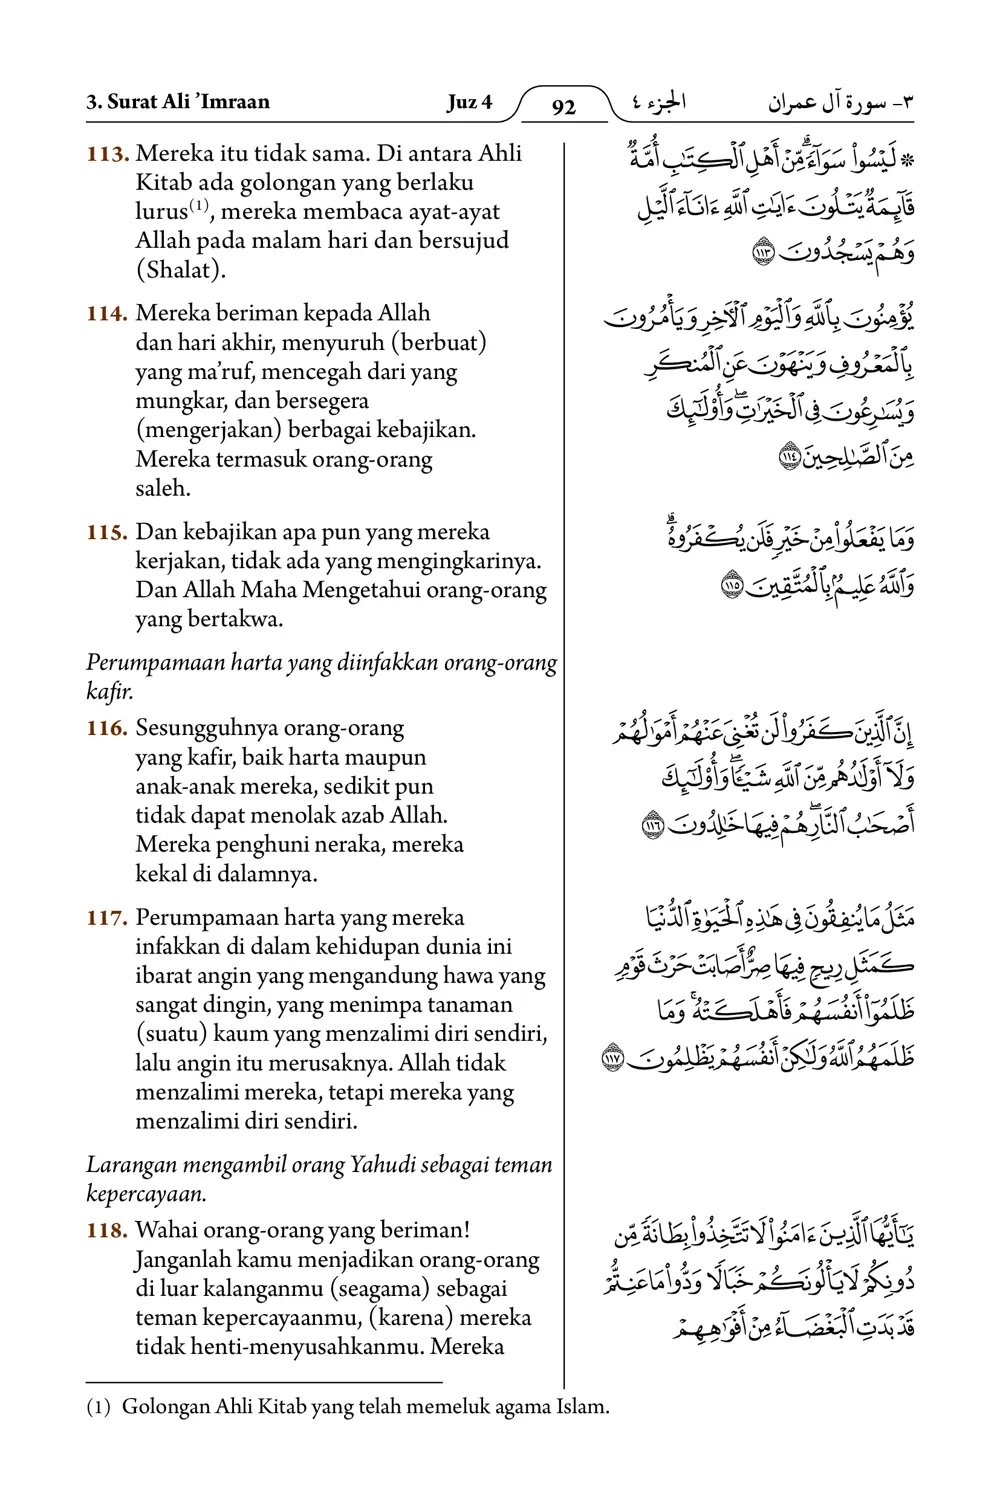 3. Surat Ali ’Imraan Juz 4 92 الجزء ٤ ٣- سورة آل عمران
113. Mereka itu tidak sama. Di antara Ahli
Kitab ada golongan yang berlaku
lurus(1), mereka membaca ayat-ayat
Allah pada malam hari dan bersujud
(Shalat).
114. Mereka beriman kepada Allah
dan hari akhir, menyuruh (berbuat)
yang ma’ruf, mencegah dari yang
mungkar, dan bersegera
(mengerjakan) berbagai kebajikan.
Mereka termasuk orang-orang
saleh.
115. Dan kebajikan apa pun yang mereka
kerjakan, tidak ada yang mengingkarinya.
Dan Allah Maha Mengetahui orang-orang
yang bertakwa.
Perumpamaan harta yang diinfakkan orang-orang
kafir.
116. Sesungguhnya orang-orang
yang kafir, baik harta maupun
anak-anak mereka, sedikit pun
tidak dapat menolak azab Allah.
Mereka penghuni neraka, mereka
kekal di dalamnya.
117. Perumpamaan harta yang mereka
infakkan di dalam kehidupan dunia ini
ibarat angin yang mengandung hawa yang
sangat dingin, yang menimpa tanaman
(suatu) kaum yang menzalimi diri sendiri,
lalu angin itu merusaknya. Allah tidak
menzalimi mereka, tetapi mereka yang
menzalimi diri sendiri.
Larangan mengambil orang Yahudi sebagai teman
kepercayaan.
118. Wahai orang-orang yang beriman!
Janganlah kamu menjadikan orang-orang
di luar kalanganmu (seagama) sebagai
teman kepercayaanmu, (karena) mereka
tidak henti-menyusahkanmu. Mereka
۞ لَيْسُوا۟ سَوَآءً ۗ مِّنْ أَهْلِ ٱلْكِتَٰبِ أُمَّةٌ
قَآئِمَةٌ يَتْلُونَ ءَايَٰتِ ٱللَّهِ ءَانَآءَ ٱلَّيْلِ
وَهُمْ يَسْجُدُونَ ١١٣
يُؤْمِنُونَ بِٱللَّهِ وَٱلْيَوْمِ ٱلْـَٔاخِرِ وَيَأْمُرُونَ
بِٱلْمَعْرُوفِ وَيَنْهَوْنَ عَنِ ٱلْمُنكَرِ
وَيُسَٰرِعُونَ فِى ٱلْخَيْرَٰتِ ۖ وَأُو۟لَٰٓئِكَ
مِنَ ٱلصَّٰلِحِينَ ١١٤
وَمَا يَفْعَلُوا۟ مِنْ خَيْرٍ فَلَن يُكْفَرُوهُ ۗ
وَٱللَّهُ عَلِيمٌۢ بِٱلْمُتَّقِينَ ١١٥
إِنَّ ٱلَّذِينَ كَفَرُوا۟ لَن تُغْنِىَ عَنْهُمْ أَمْوَٰلُهُمْ
وَلَآ أَوْلَٰدُهُم مِّنَ ٱللَّهِ شَيْـًٔا ۖ وَأُو۟لَٰٓئِكَ
أَصْحَٰبُ ٱلنَّارِ ۖ هُمْ فِيهَا خَٰلِدُونَ ١١٦
مَثَلُ مَا يُنفِقُونَ فِى هَٰذِهِ ٱلْحَيَوٰةِ ٱلدُّنْيَا
كَمَثَلِ رِيحٍ فِيهَا صِرٌّ أَصَابَتْ حَرْثَ قَوْمٍ
ظَلَمُوٓا۟ أَنفُسَهُمْ فَأَهْلَكَتْهُ ۚ وَمَا
ظَلَمَهُمُ ٱللَّهُ وَلَٰكِنْ أَنفُسَهُمْ يَظْلِمُونَ ١١٧
يَٰٓأَيُّهَا ٱلَّذِينَ ءَامَنُوا۟ لَا تَتَّخِذُوا۟ بِطَانَةً مِّن
دُونِكُمْ لَا يَأْلُونَكُمْ خَبَالًا وَدُّوا۟ مَا عَنِتُّمْ
قَدْ بَدَتِ ٱلْبَغْضَآءُ مِنْ أَفْوَٰهِهِمْ
(1) Golongan Ahli Kitab yang telah memeluk agama Islam.